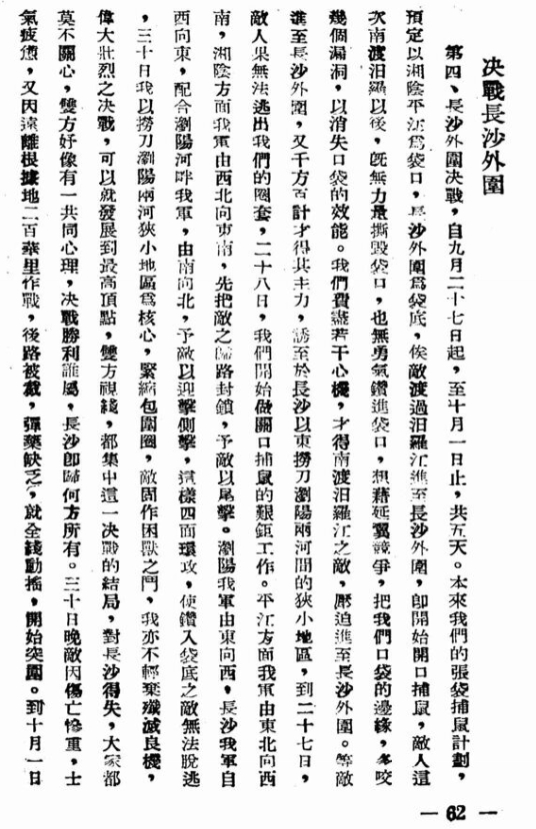 決戰長沙外圍
第四、長沙外圍決戰，自九月二十七日起，至十月一日止，共五天。本來我們的張袋捕鼠計劃，
預定以湘陰平江爲袋口，長沙外圍爲袋底，俟敵渡過汨羅江進至長沙外圍，卽開始開口捕鼠，敵人這
次南渡汨羅以後，旣無力量撕毀袋口，也無勇氣鑽進袋口，想藉延翼競爭，把我們口袋的邊緣，多咬
幾個漏洞，以消失口袋的效能。我們費盡若干心機，才得南渡汨羅江之敵，壓迫進至長沙外圍。等敵
進至長沙外圍，又千方百計才得其主力，誘至於長沙以東撈刀瀏陽兩河間的狹小地區，到二十七日，
敵人果無法逃出我們的圈套，二十八日，我們開始做關口捕鼠的艱鉅工作。平江方面我軍由東北向西
南，湘陰方面我軍由西北向東南，先把敵之歸路封鎖，予敵以尾擊。瀏陽我軍由東向西，長沙我軍自
西向東，配合瀏陽河畔我軍，由南向北，予敵以迎擊側擊，這樣四面環攻，使鑽入袋底之敵無法脫逃
，三十日我以撈刀瀏陽兩河狹小地區爲核心，緊縮包圍圈，敵固作困獸之鬥，我亦不輕棄殲滅良機，
偉大壯烈之決戰，可以就發展到最高頂點，雙方視綫，都集中這一決戰的結局，對長沙得失，大家都
莫不關心，雙方好像有一共同心理，決戰勝利誰屬，長沙卽歸何方所有。三十日晚敵因傷亡慘重，士
氣疲憊，又因遠離根據地二百華里作戰，後路被截，彈藥缺乏，就全綫動搖，開始突圍。到十月一日
— 62 —